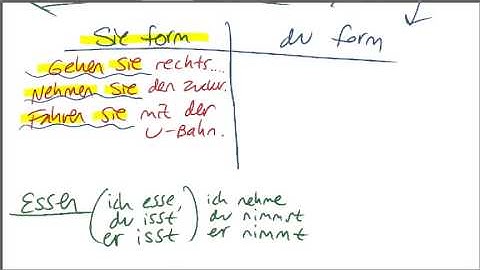 Sie form
du form
Gehen Sie rechts....
Nehmen Sie den Zucker.
Fahren Sie mit der
U-Bahn.
Essen (ich esse, ich nehme
du isst) du nimmst
er isst er nimmt